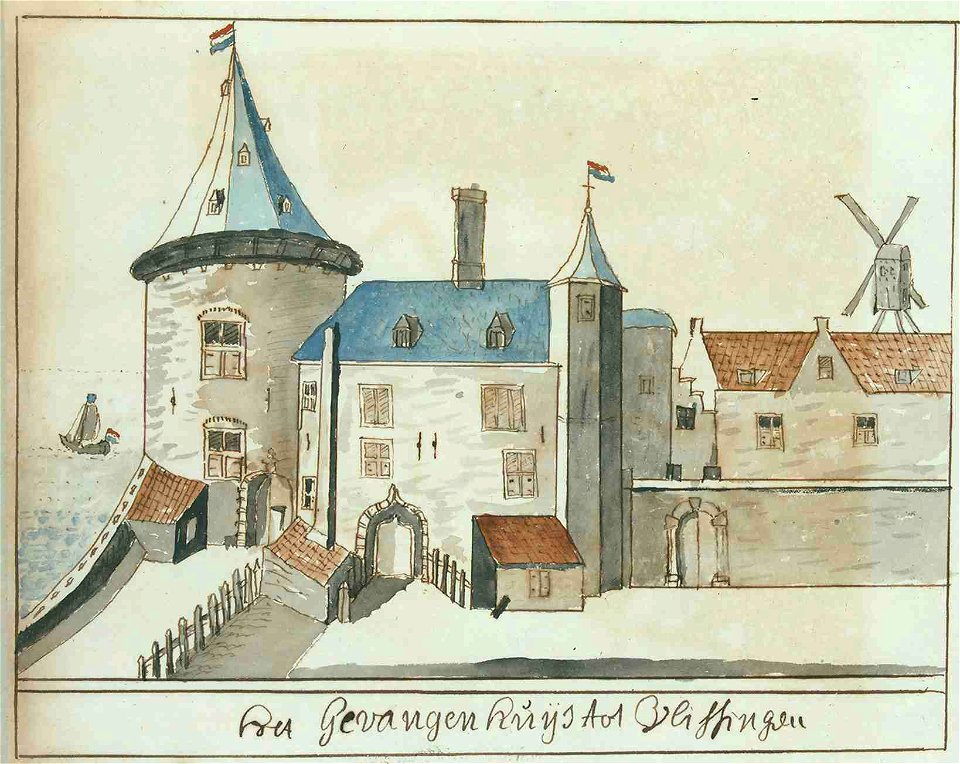 Het Gevangenhuijs tot Vlissingen